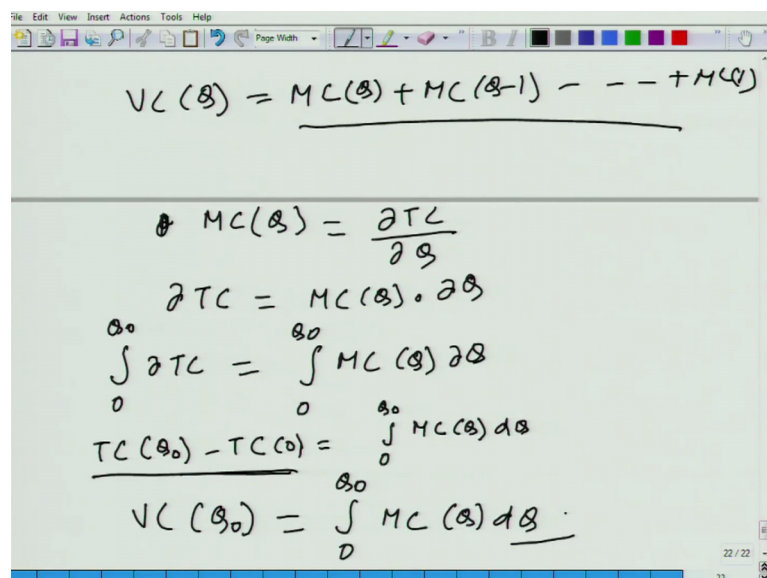 File Edit View Insert Actions Tools Help
Page Width
VC(Q) = MC(Q) + MC(Q-1) - - - + MC(1)
MC(Q) = ∂TC/∂Q
∂TC = MC(Q) . ∂Q
∫₀^Q0 ∂TC = ∫₀^Q0 MC(Q) ∂Q
TC(Q₀) - TC(0) = ∫₀^Q0 MC(Q) dQ
VC(Q₀) = ∫₀^Q0 MC(Q) dQ .
22 / 22
22